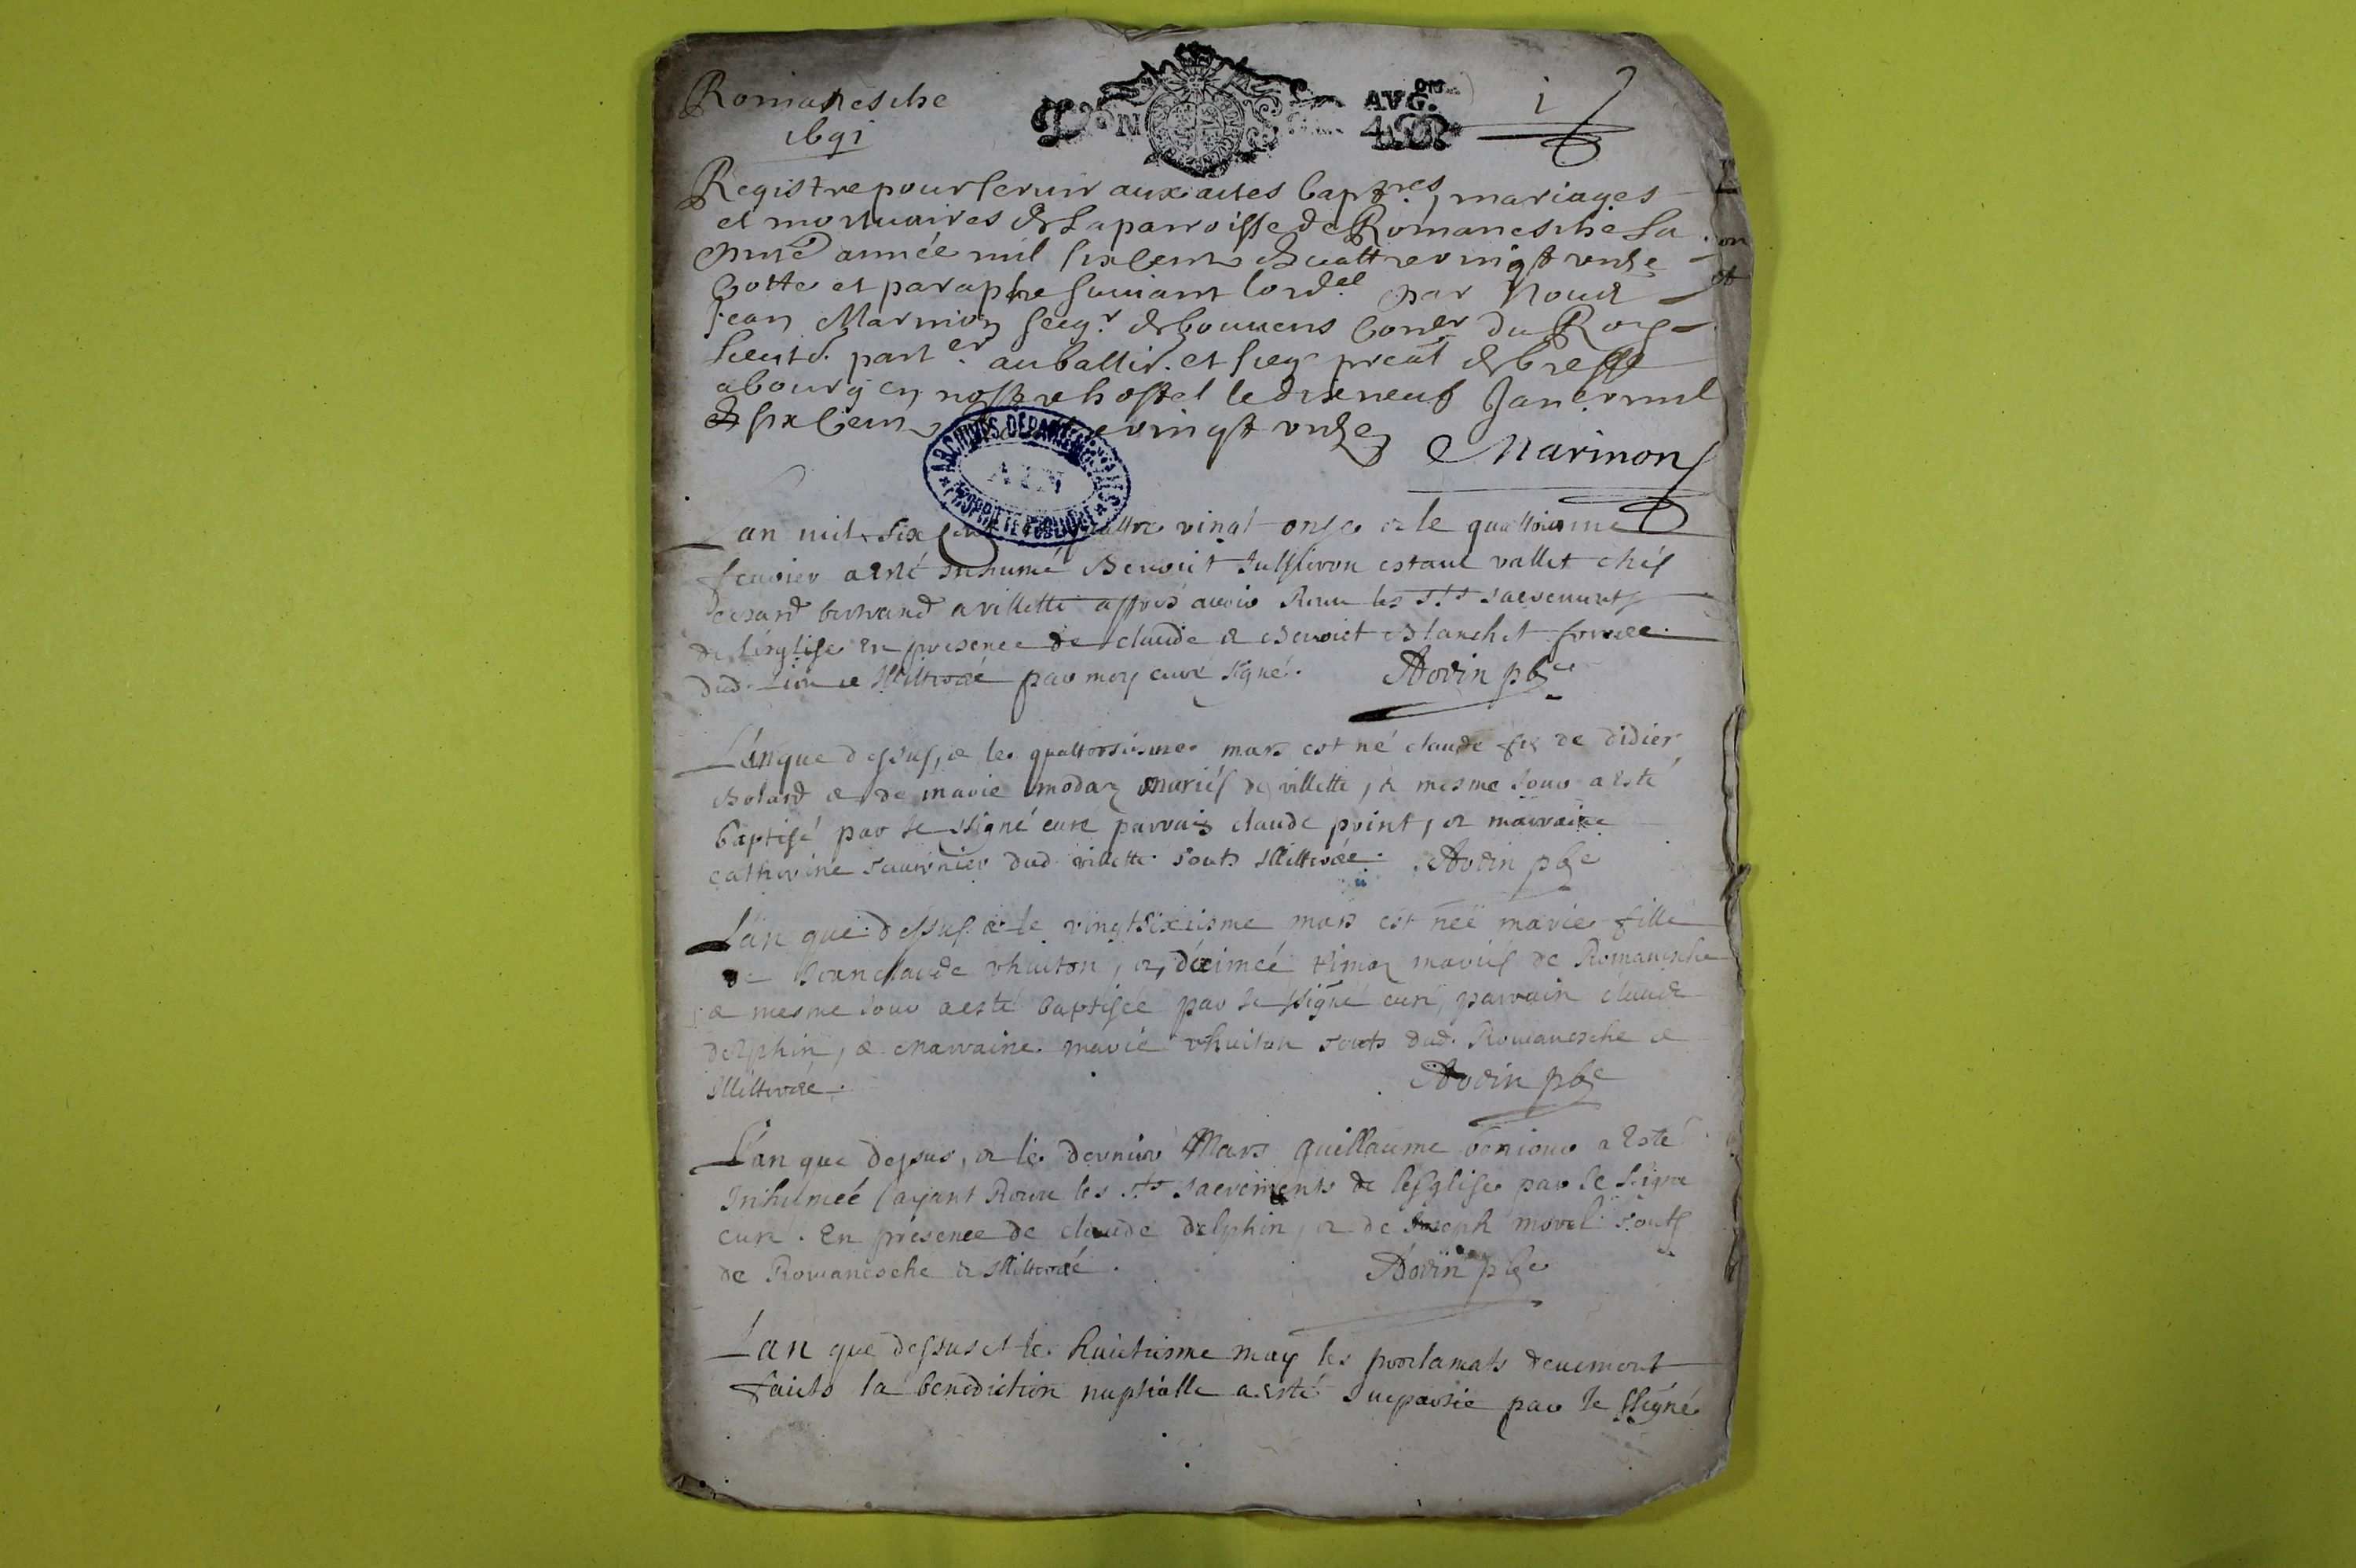 Romanesche
1691
AVG.on
i
Registre pour servir aux actes baptres, mariages
et mortuaires de la parroisse de Romanesche La
année mil six cents quattre vingt unze
Cotté et paraphé suivant lord.el par Nous
Jean Marinon seigr de bouuens Coner du Roy
Lieut. parter au balli. et siege preal de bresse
a bourg en nostre hostel le dixneuf Janer mil
six Cents vingt unze
Marinon
ARCHIVES DÉPARTEMENTALES
AIN
PROPRIÉTÉ PUBLIQUE
Lan mil six quattre vingt onse & le
feuvier a esté inhumé Benoict estant vallet chés
bertrand a villette appres avoir Receu les sts sacrements
de l'esglise en presence de claude & Benoict Blanchet
dud. lieu & illitteré par moy curé signé. pbre
L'an que dessus, & le quattorsiesme mars est né claude fis de didier
Bolard & de marie modaz mariés de villette, & mesme Jour a esté
baptisé par le ssigné curé parrain claude point, & marraine
catherine dud villette touts illitteré. pbre
L'an que dessus & le vingtsixiesme mars est neé marie fille
de Jean claude vhuiton, & mariés de Romanesche
& mesme Jour a esté baptiseé par le ssigné curé, parrain claude
delphin, & marraine marie vhuiton touts dud. Romanesche &
illitteré. pbre
L'an que dessus, & le dernier Mars guillaume a esté
Inhumeé ayant Receu les sts sacrements de l'esglise par le signé
curé. En présence de claude delphin, & de Joseph morel touts
de Romanesche & illitteré. pbre
Lan que dessus et le huictiesme may les proclamats deuement
faicts la benediction nuptialle a esté Impartie par le ssigné